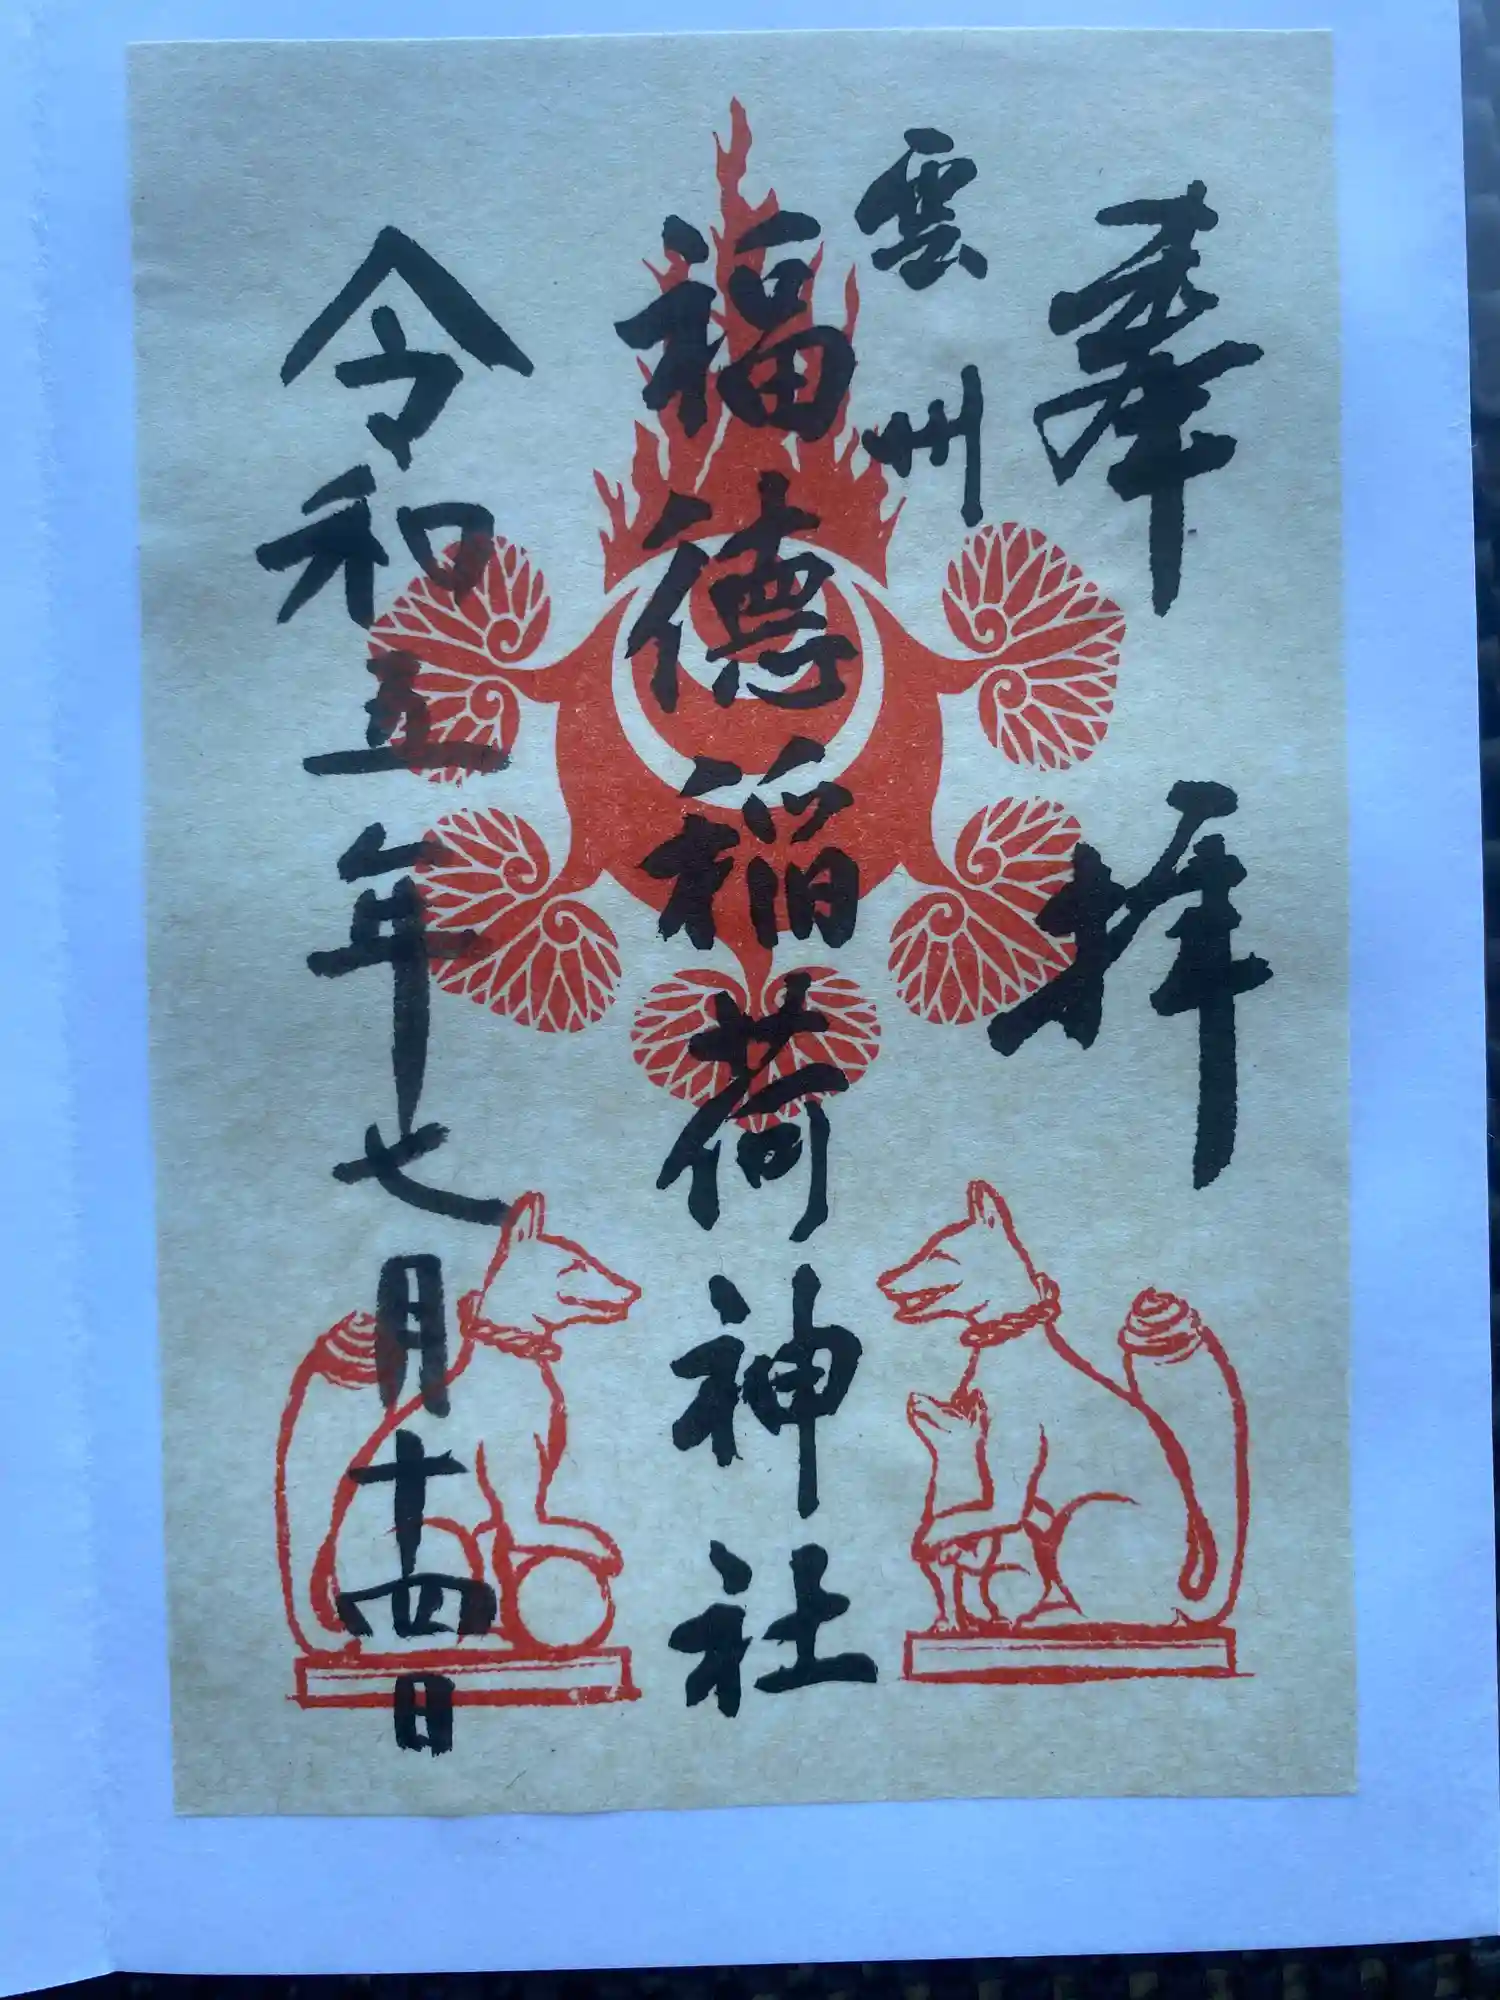 奉拝
雲州
福德稲荷神社
令和五年七月十四日